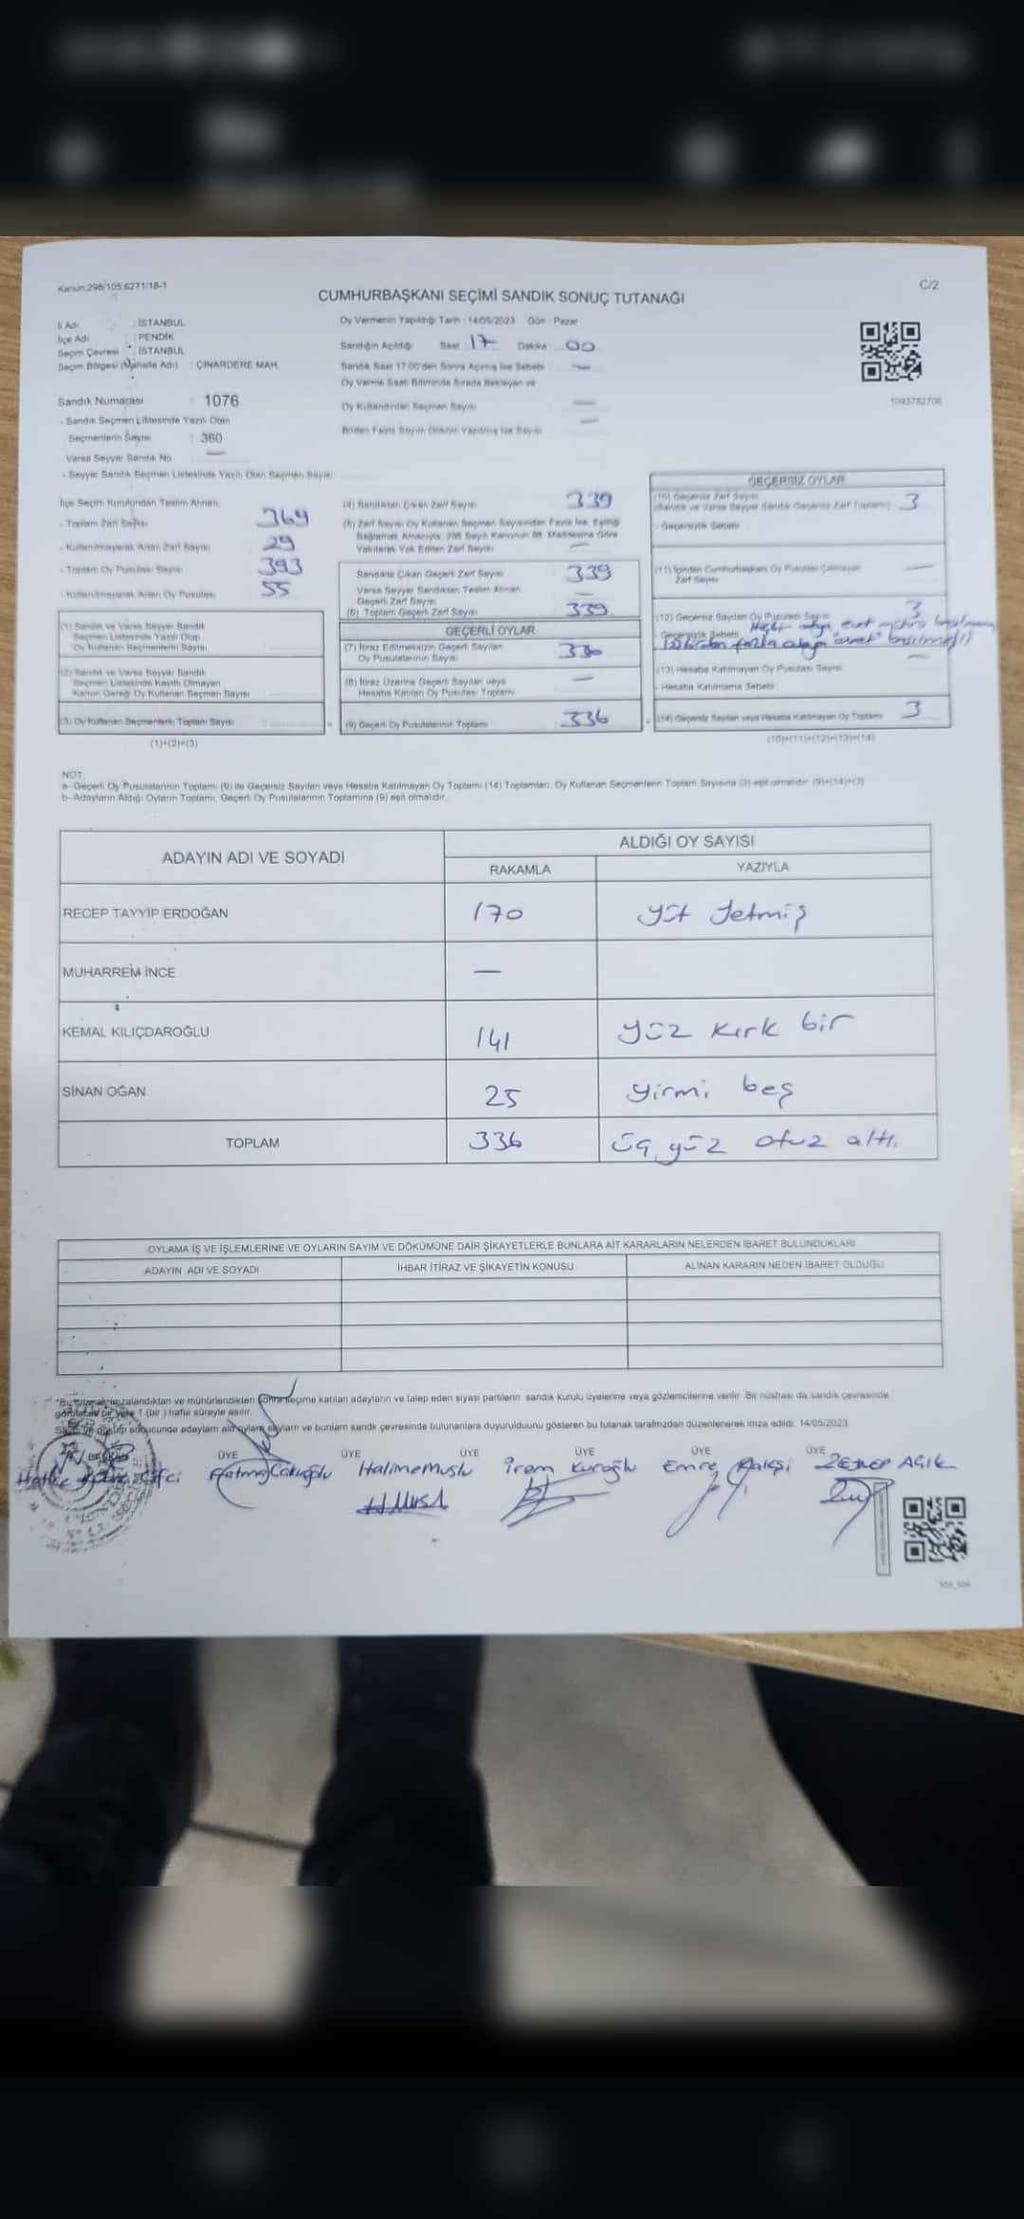 Kanun:298/105;6271/18-1
C/2
CUMHURBAŞKANI SEÇİMİ SANDIK SONUÇ TUTANAĞI
İl Adı : İSTANBUL
İlçe Adı : PENDİK
Seçim Çevresi : İSTANBUL
Seçim Bölgesi (Mahalle Adı) : ÇINARDERE MAH.
Oy Vermenin Yapıldığı Tarih : 14/05/2023 Gün : Pazar
Sandığın Açıldığı Saat 17 Dakika 00
Sandık Saat 17:00'den Sonra Açılmış İse Sebebi —
Oy Verme Saati Bitiminde Sırada Bekleyen ve
Oy Kullandırılan Seçmen Sayısı —
Birden Fazla Sayım Döküm Yapılmış İse Sayısı —
1093782706
Sandık Numarası : 1076
- Sandık Seçmen Listesinde Yazılı Olan
Seçmenlerin Sayısı : 360
Varsa Seyyar Sandık No —
- Seyyar Sandık Seçmen Listesinde Yazılı Olan Seçmen Sayısı
İlçe Seçim Kurulundan Teslim Alınan
- Toplam Zarf Sayısı 369
- Kullanılmayarak Artan Zarf Sayısı 29
- Toplam Oy Pusulası Sayısı 393
- Kullanılmayarak Artan Oy Pusulası 55
(1) Sandık ve Varsa Seyyar Sandık
Seçmen Listesinde Yazılı Olup
Oy Kullanan Seçmenlerin Sayısı
(2) Sandık ve Varsa Seyyar Sandık
Seçmen Listesinde Kayıtlı Olmayan
Kanun Gereği Oy Kullanan Seçmen Sayısı
(3) Oy Kullanan Seçmenlerin Toplam Sayısı
(1)+(2)=(3)
(4) Sandıktan Çıkan Zarf Sayısı 339
(5) Zarf Sayısı Oy Kullanan Seçmen Sayısından Fazla İse, Eşitliği
Sağlamak Amacıyla; 298 Sayılı Kanunun 98. Maddesine Göre
Yakılarak Yok Edilen Zarf Sayısı —
Sandıkta Çıkan Geçerli Zarf Sayısı 339
Varsa Seyyar Sandıktan Teslim Alınan
Geçerli Zarf Sayısı —
(6) Toplam Geçerli Zarf Sayısı 339
GEÇERLİ OYLAR
(7) İtiraz Edilmeksizin Geçerli Sayılan
Oy Pusulalarının Sayısı 336
(8) İtiraz Üzerine Geçerli Sayılan veya
Hesaba Katılan Oy Pusulası Toplamı —
(9) Geçerli Oy Pusulalarının Toplamı 336
GEÇERSİZ OYLAR
(10) Geçersiz Zarf Sayısı
(Sandık ve Varsa Seyyar Sandık Geçersiz Zarf Toplamı) 3
- Geçersizlik Sebebi
(11) İçinden Cumhurbaşkanı Oy Pusulası Çıkmayan
Zarf Sayısı —
(12) Geçersiz Sayılan Oy Pusulası Sayısı 3
- Geçersizlik Sebebi
birden fazla adaya "evet"
(13) Hesaba Katılmayan Oy Pusulası Sayısı —
- Hesaba Katılmama Sebebi
(14) Geçersiz Sayılan veya Hesaba Katılmayan Oy Toplamı 3
(10)+(11)+(12)+(13)=(14)
NOT:
a- Geçerli Oy Pusulalarının Toplamı (9) ile Geçersiz Sayılan veya Hesaba Katılmayan Oy Toplamı (14) Toplamları, Oy Kullanan Seçmenlerin Toplam Sayısına (3) eşit olmalıdır. (9)+(14)=(3)
b- Adayların Aldığı Oyların Toplamı, Geçerli Oy Pusulalarının Toplamına (9) eşit olmalıdır.
ADAYIN ADI VE SOYADI
ALDIĞI OY SAYISI
RAKAMLA YAZIYLA
RECEP TAYYİP ERDOĞAN 170 yüz yetmiş
MUHARREM İNCE —
KEMAL KILIÇDAROĞLU 141 yüz kırk bir
SİNAN OĞAN 25 yirmi beş
TOPLAM 336 üç yüz otuz altı
OYLAMA İŞ VE İŞLEMLERİNE VE OYLARIN SAYIM VE DÖKÜMÜNE DAİR ŞİKAYETLERLE BUNLARA AİT KARARLARIN NELERDEN İBARET BULUNDUKLARI
ADAYIN ADI VE SOYADI İHBAR İTİRAZ VE ŞİKAYETİN KONUSU ALINAN KARARIN NEDEN İBARET OLDUĞU
"Bu tutanak imzalandıktan ve mühürlendikten sonra seçime katılan adayların ve talep eden siyasi partilerin sandık kurulu üyelerine veya gözlemcilerine verilir. Bir nüshası da sandık çevresinde
görülecek bir yere 1 (bir ) hafta süreyle asılır.
sonucunda adayların aldığı oyların sayılarını ve bunların sandık çevresinde bulunanlara duyurulduğunu gösteren bu tutanak tarafımızdan düzenlenerek imza edildi. 14/05/2023
ÜYE ÜYE ÜYE ÜYE ÜYE ÜYE
Halime Muslu İrem Kuroğlu Emre Zeynep AÇIK